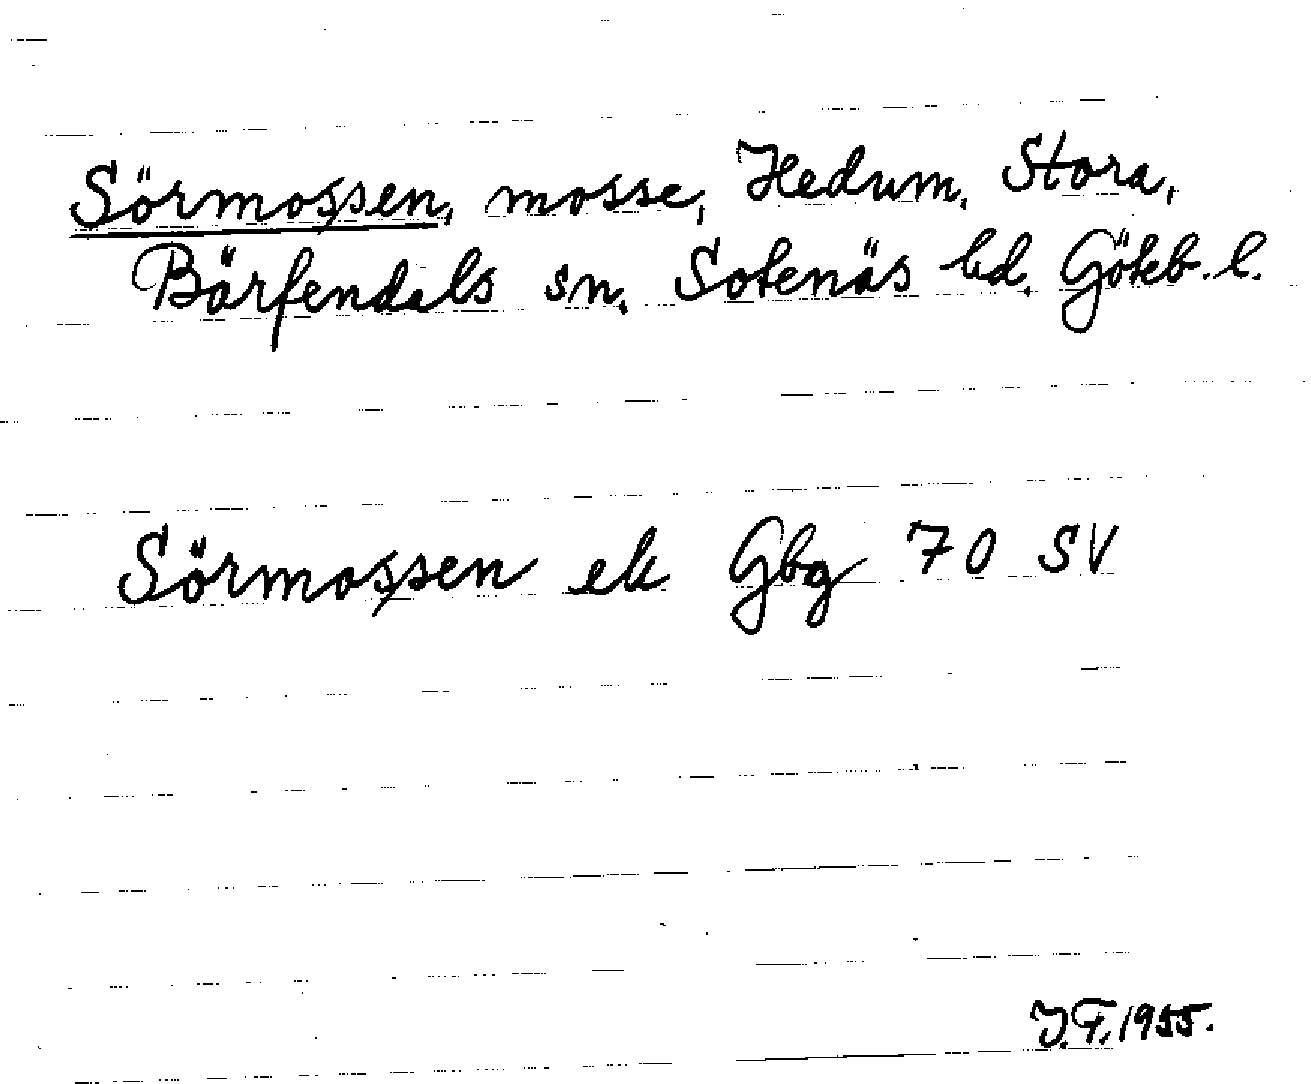 Sörmossen, mosse, Hedum, Stora,
Bärfendals sn. Sotenäs hd. Göteb. l.
Sörmossen ek Gbg 70 SV
J.F. 1955.